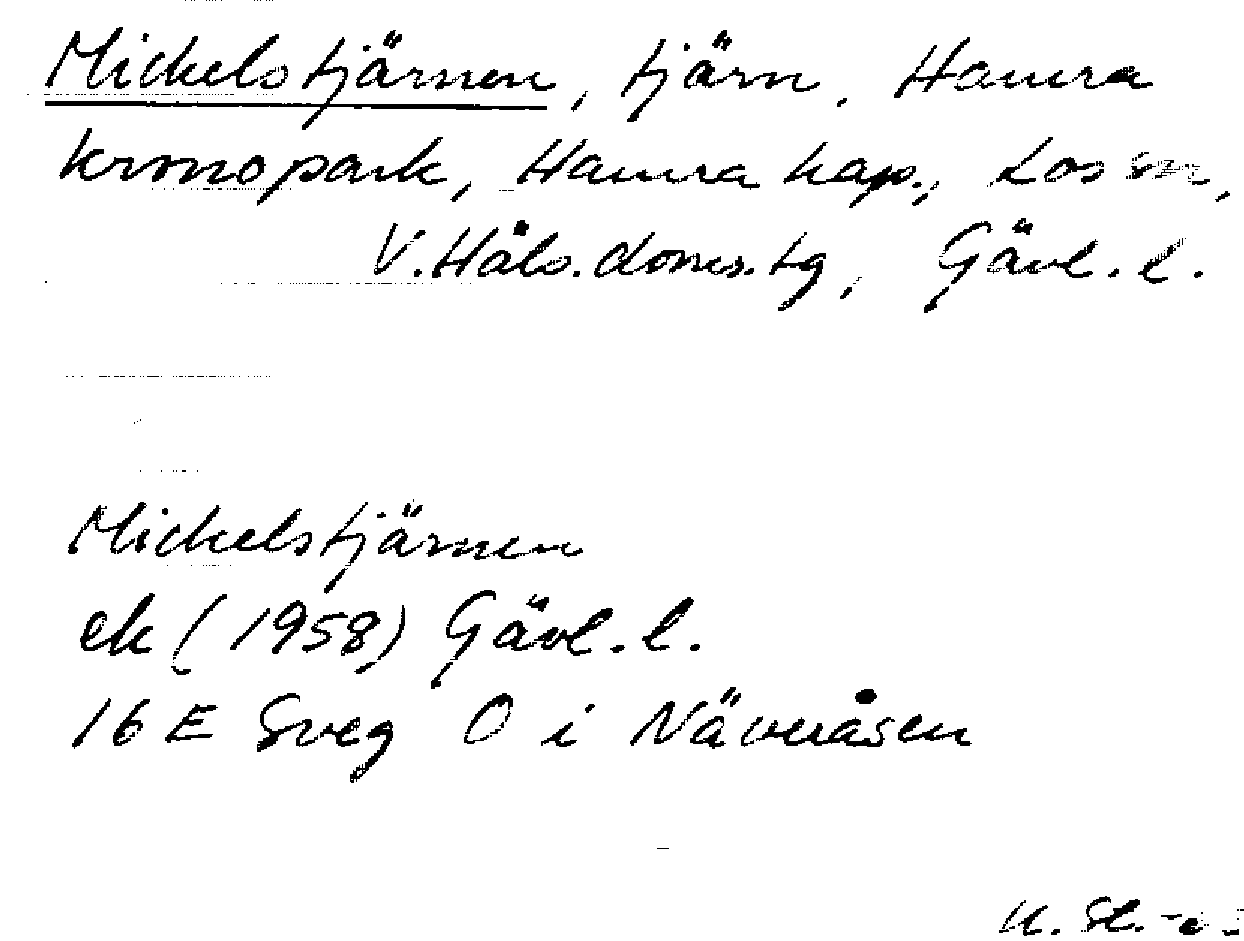 Mickelstjärnen, tjärn, Hamra
kronopark, Hamra kap., Los sn,
V. Häls. doms.tg, Gävl. l.
Mickelstjärnen
ek (1958) Gävl. l.
16 E Sveg O i Näveråsen